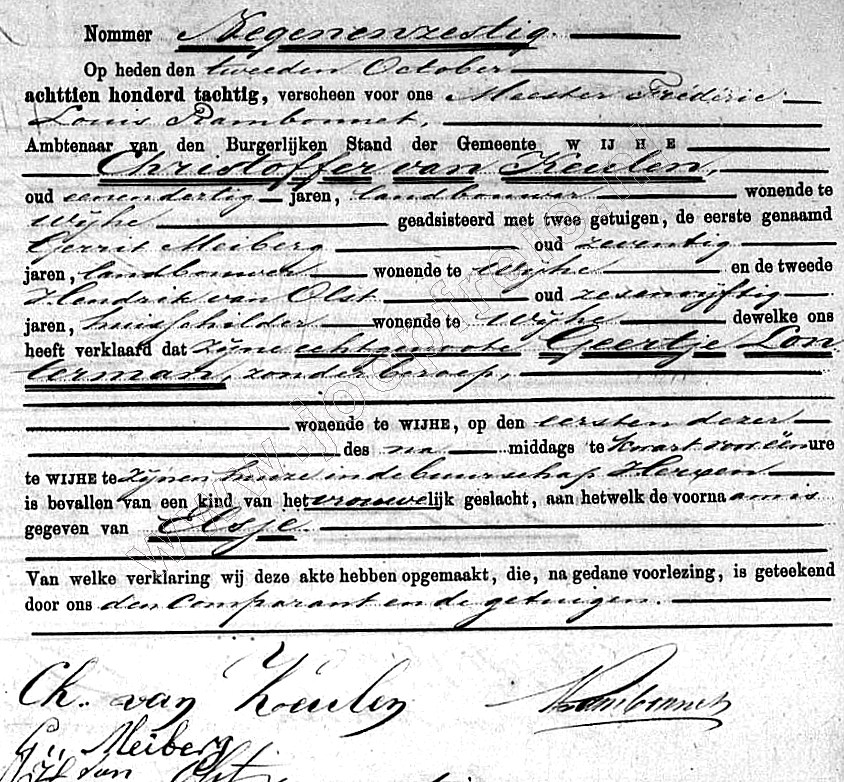 Nommer Negenenzestig.
Op heden den tweeden October
achttien honderd tachtig, verscheen voor ons Meester Fréderic
Louis Rambonnet,
Ambtenaar van den Burgerlijken Stand der Gemeente WIJHE
Christoffer van Keulen,
oud eenendertig jaren, landbouwer wonende te
Wijhe geadsisteerd met twee getuigen, de eerste genaamd
Gerrit Meiberg oud zeventig
jaren, landbouwer wonende te Wijhe en de tweede
Hendrik van Olst oud zesenvijftig
jaren, huisschilder wonende te Wijhe dewelke ons
heeft verklaard dat zijne echtgenoote Geertje Lon
terman, zonder beroep,
wonende te WIJHE, op den eersten dezer
des na middags te kwart voor één ure
te WIJHE te zijnen huize in de buurschap Herxen
is bevallen van een kind van het vrouwelijk geslacht, aan hetwelk de voornaam is
gegeven van Elsje
Van welke verklaring wij deze akte hebben opgemaakt, die, na gedane voorlezing, is geteekend
door ons den comparant en de getuigen.
Ch. van Keulen Rambonnet
Meiberg
van Olst
www.jodbfrejo.nl